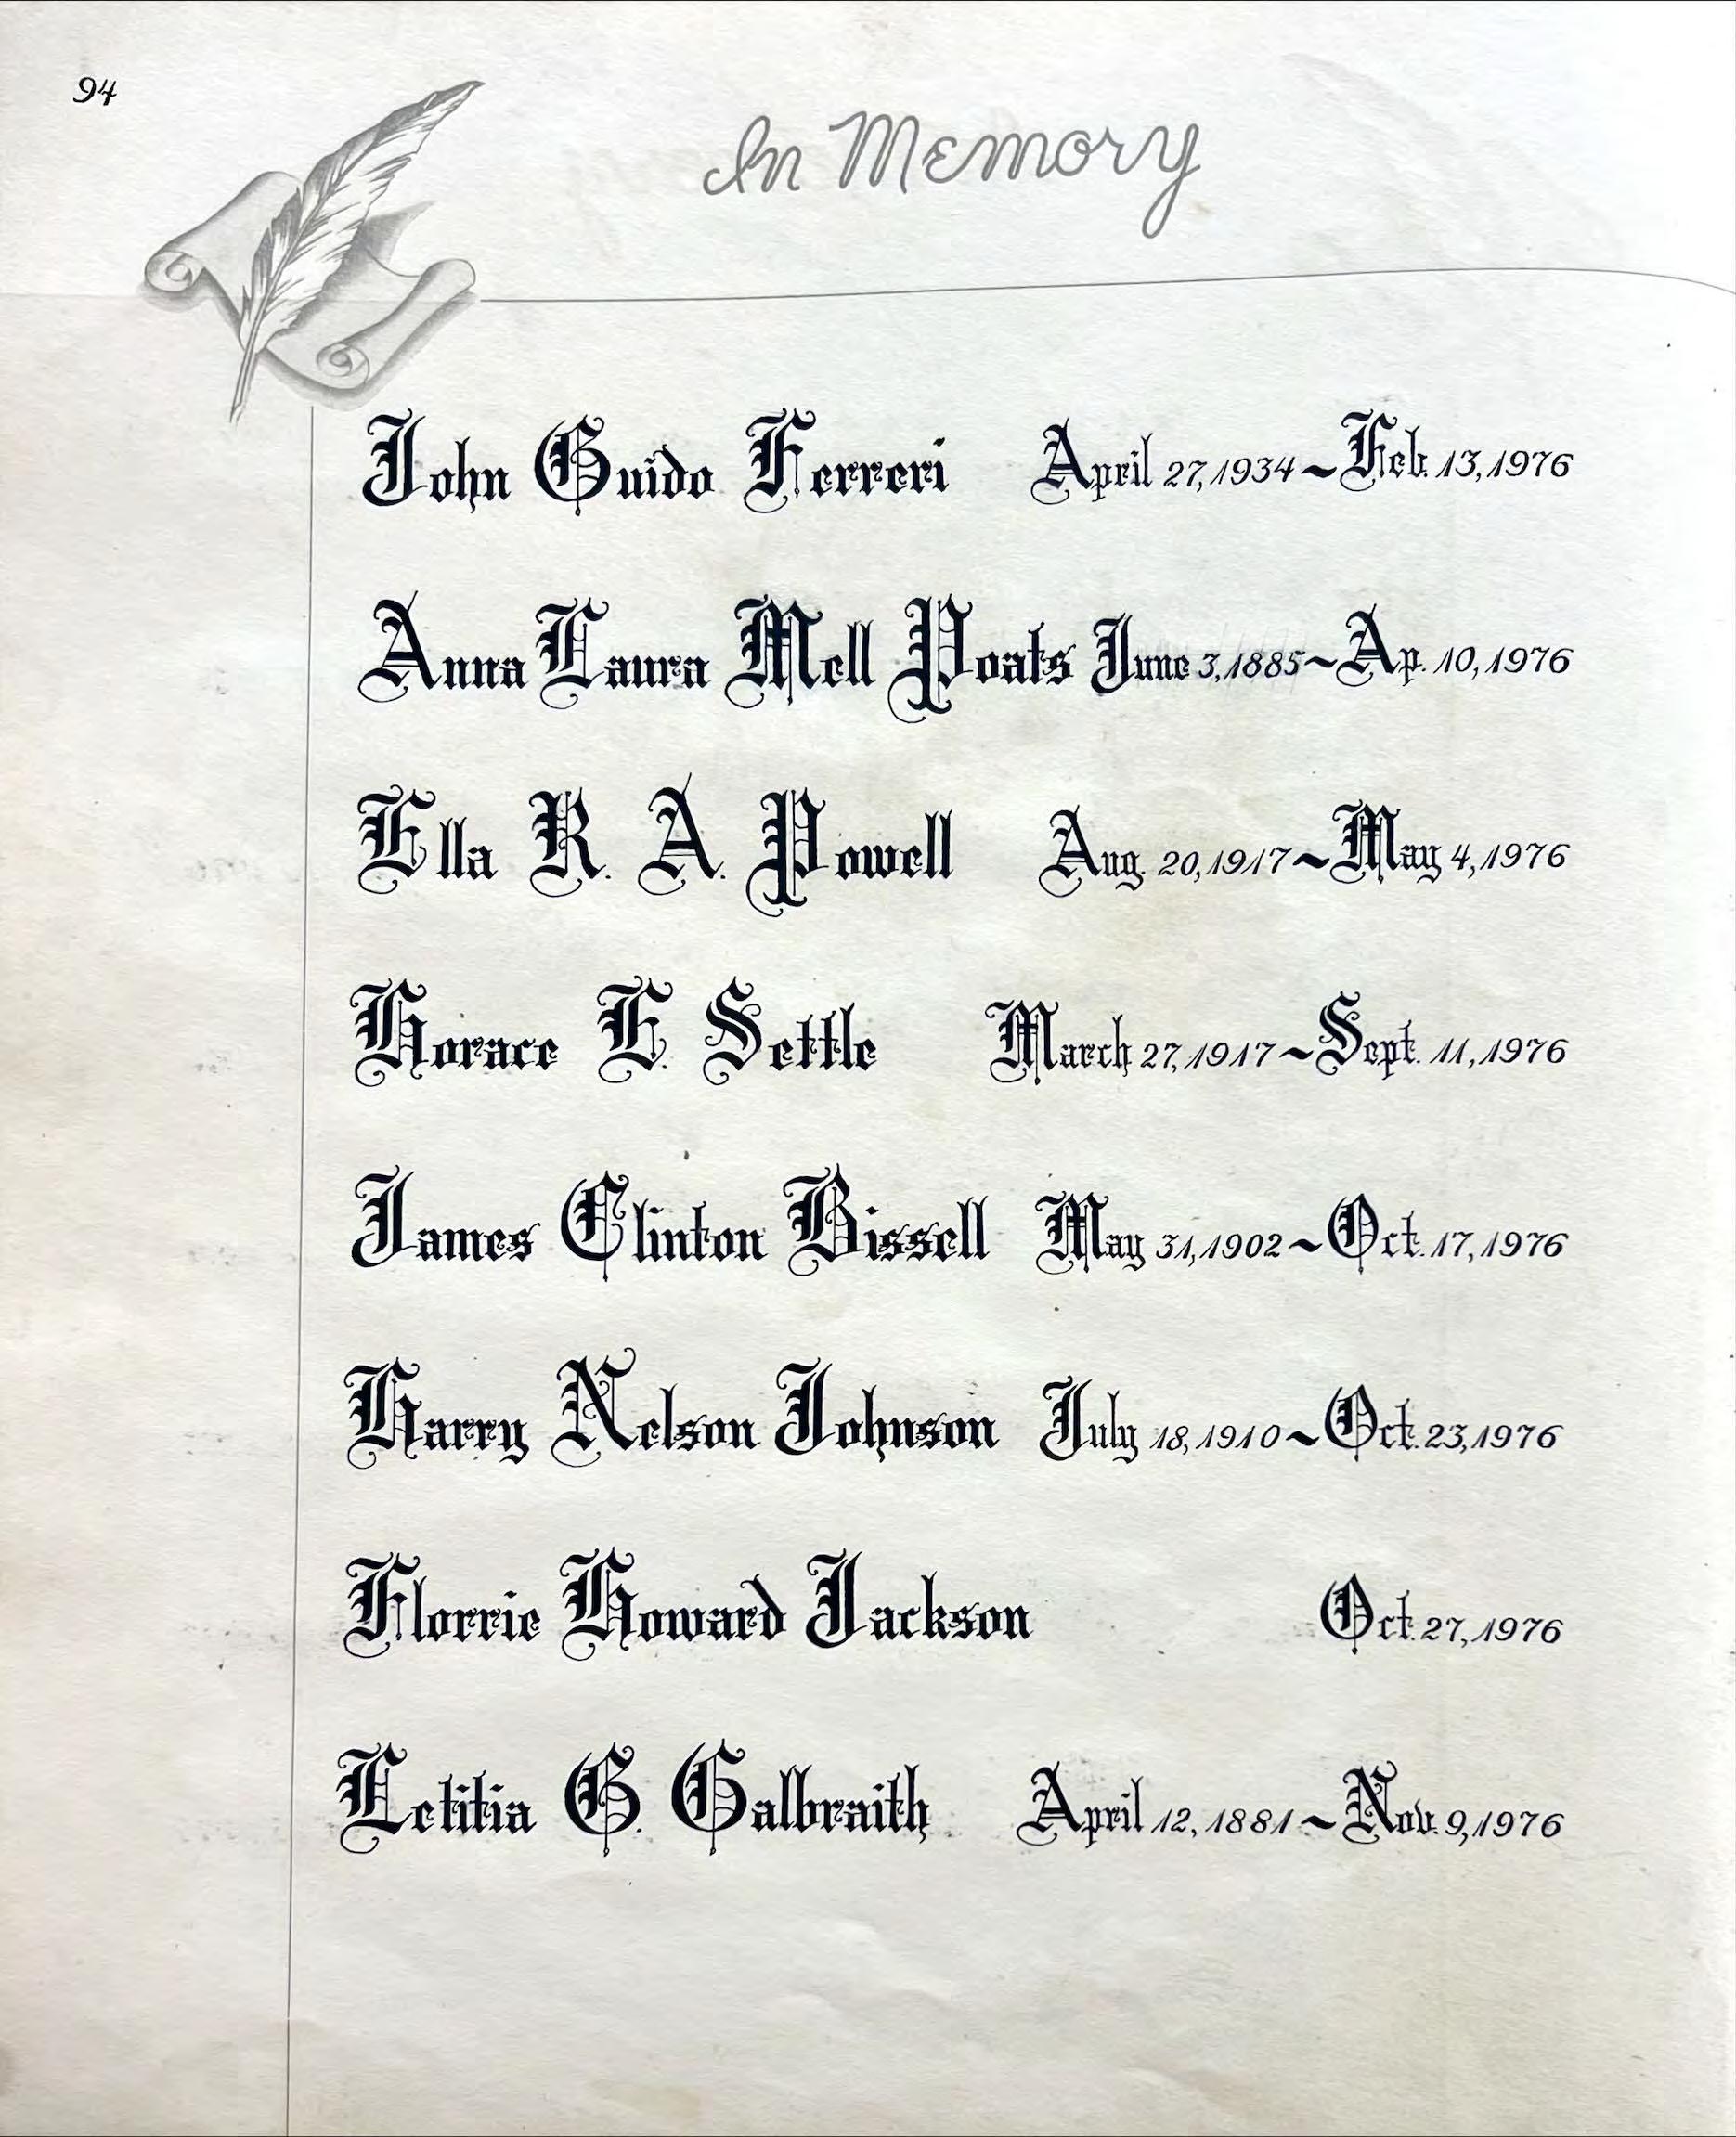 94
In Memory
John Guido Ferreri April 27, 1934 ~ Feb. 13, 1976
Anna Laura Mell Poats June 3, 1885 ~ Ap. 10, 1976
Ella R. A. Powell Aug. 20, 1917 ~ May 4, 1976
Horace E. Settle March 27, 1917 ~ Sept. 11, 1976
James Clinton Bissell May 31, 1902 ~ Oct. 17, 1976
Harry Nelson Johnson July 18, 1910 ~ Oct. 23, 1976
Florrie Howard Jackson Oct. 27, 1976
Letitia G. Galbraith April 12, 1881 ~ Nov. 9, 1976